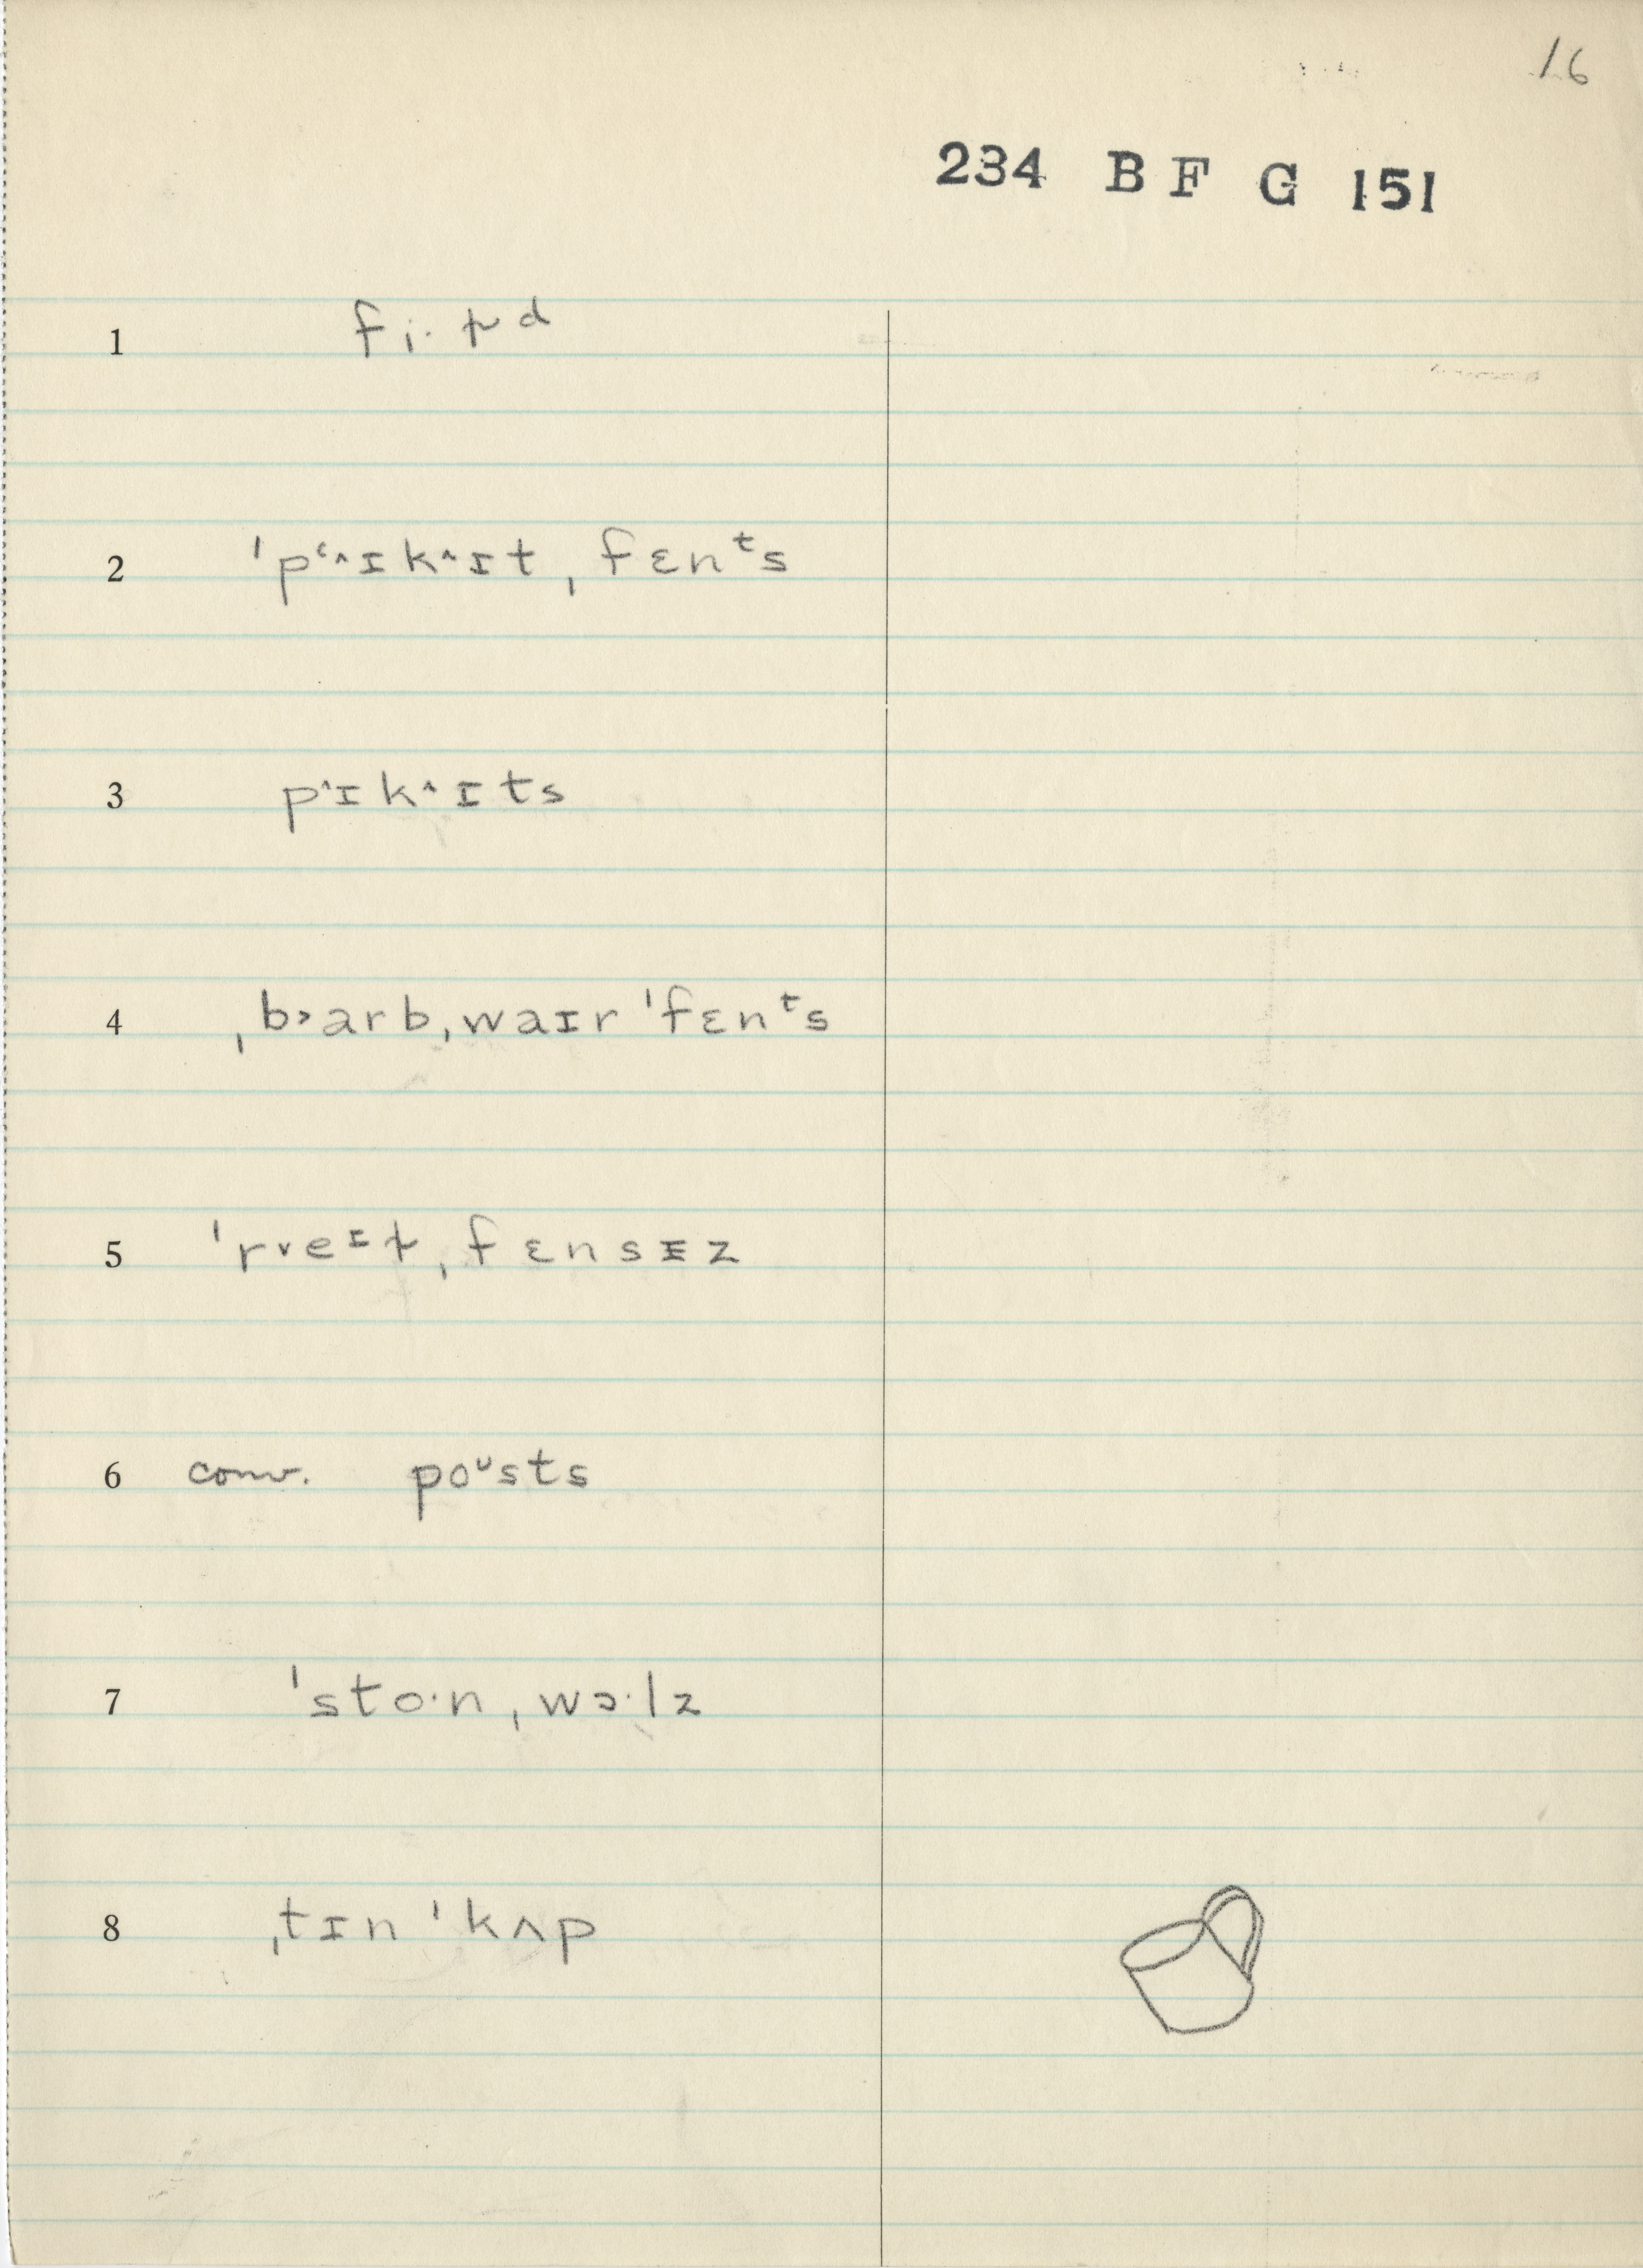 16
234 B F G 151
1 fi·ɫd
2 ˈpʻ^ɪk^ɪt ˌfɛnᵗs
3 p^ɪk^ɪts
4 ˌb˃arbˌwaɪr ˈfɛnᵗs
5 ˈr˅eᶦɫˌfɛnsɪ̵z
6 conv. poᶸsts
7 ˈsto·nˌwɔ·lz
8 ˌtɪn ˈkʌp